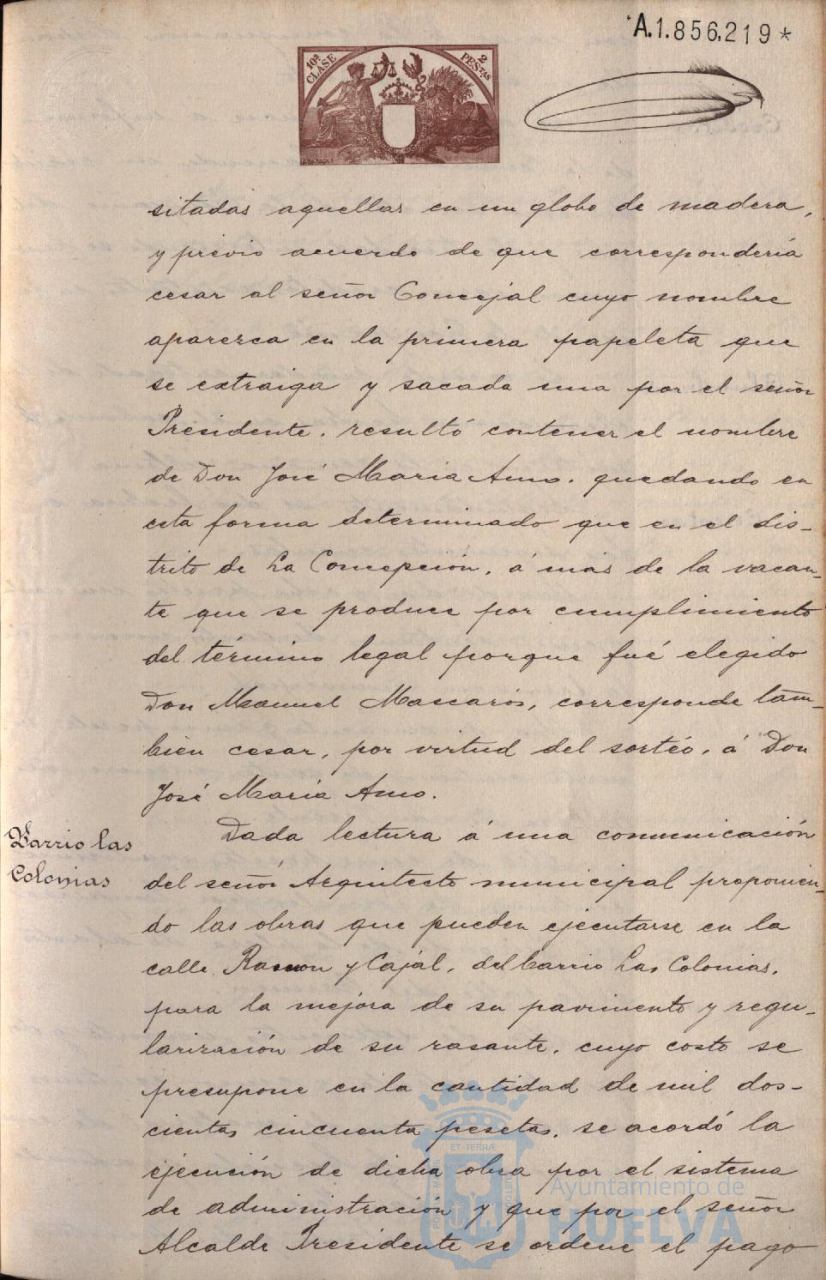 A.1.856,219*
10ª CLASE
2 PESTAS
sitadas aquellas en un globo de madera,
y prévio acuerdo de que correspondería
cesar al señor Concejal cuyo nombre
aparezca en la primera papeleta que
se extraiga y sacada una por el señor
Presidente, resultó contener el nombre
de Don José Maria Amo, quedando en
esta forma determinado que en el dis-
trito de La Concepción, á más de la vacan-
te que se produce por cumplimiento
del término legal porque fué elegido
Don Manuel Mascarós, corresponde tam-
bién cesar, por virtud del sorteo, á Don
José Maria Amo.
Barrio las
Colonias
Dada lectura á una comunicación
del señor Arquitecto municipal proponien-
do las obras que pueden ejecutarse en la
calle Ramon y Cajal, del barrio Las Colonias,
para la mejora de su pavimento y regu-
larización de su rasante, cuyo costo se
presupone en la cantidad de mil dos-
cientas cincuenta pesetas, se acordó la
ejecución de dicha obra por el sistema
de administración y que por el señor
Alcalde Presidente se ordene el pago
Ayuntamiento de
HUELVA